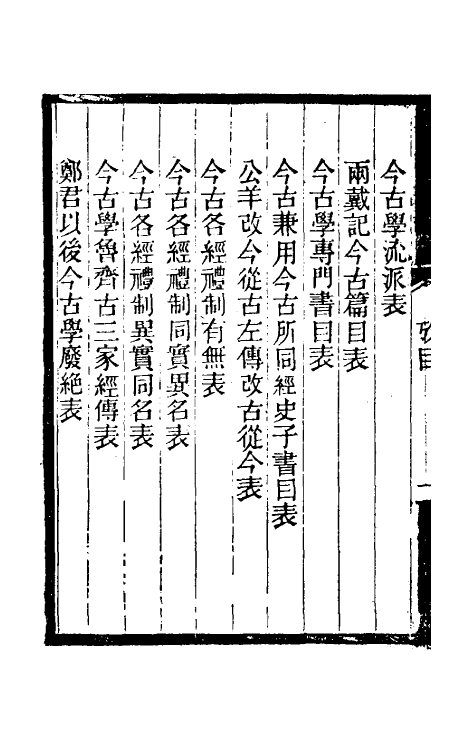 今古學流派表
兩戴記今古篇目表
今古學專門書目表
今古兼用今古所同經史子書目表
公羊改今從古左傳改古從今表
今古各經禮制有無表
今古各經禮制同實異名表
今古各經禮制異實同名表
今古學魯齊古三家經傳表
鄭君以後今古學廢絶表